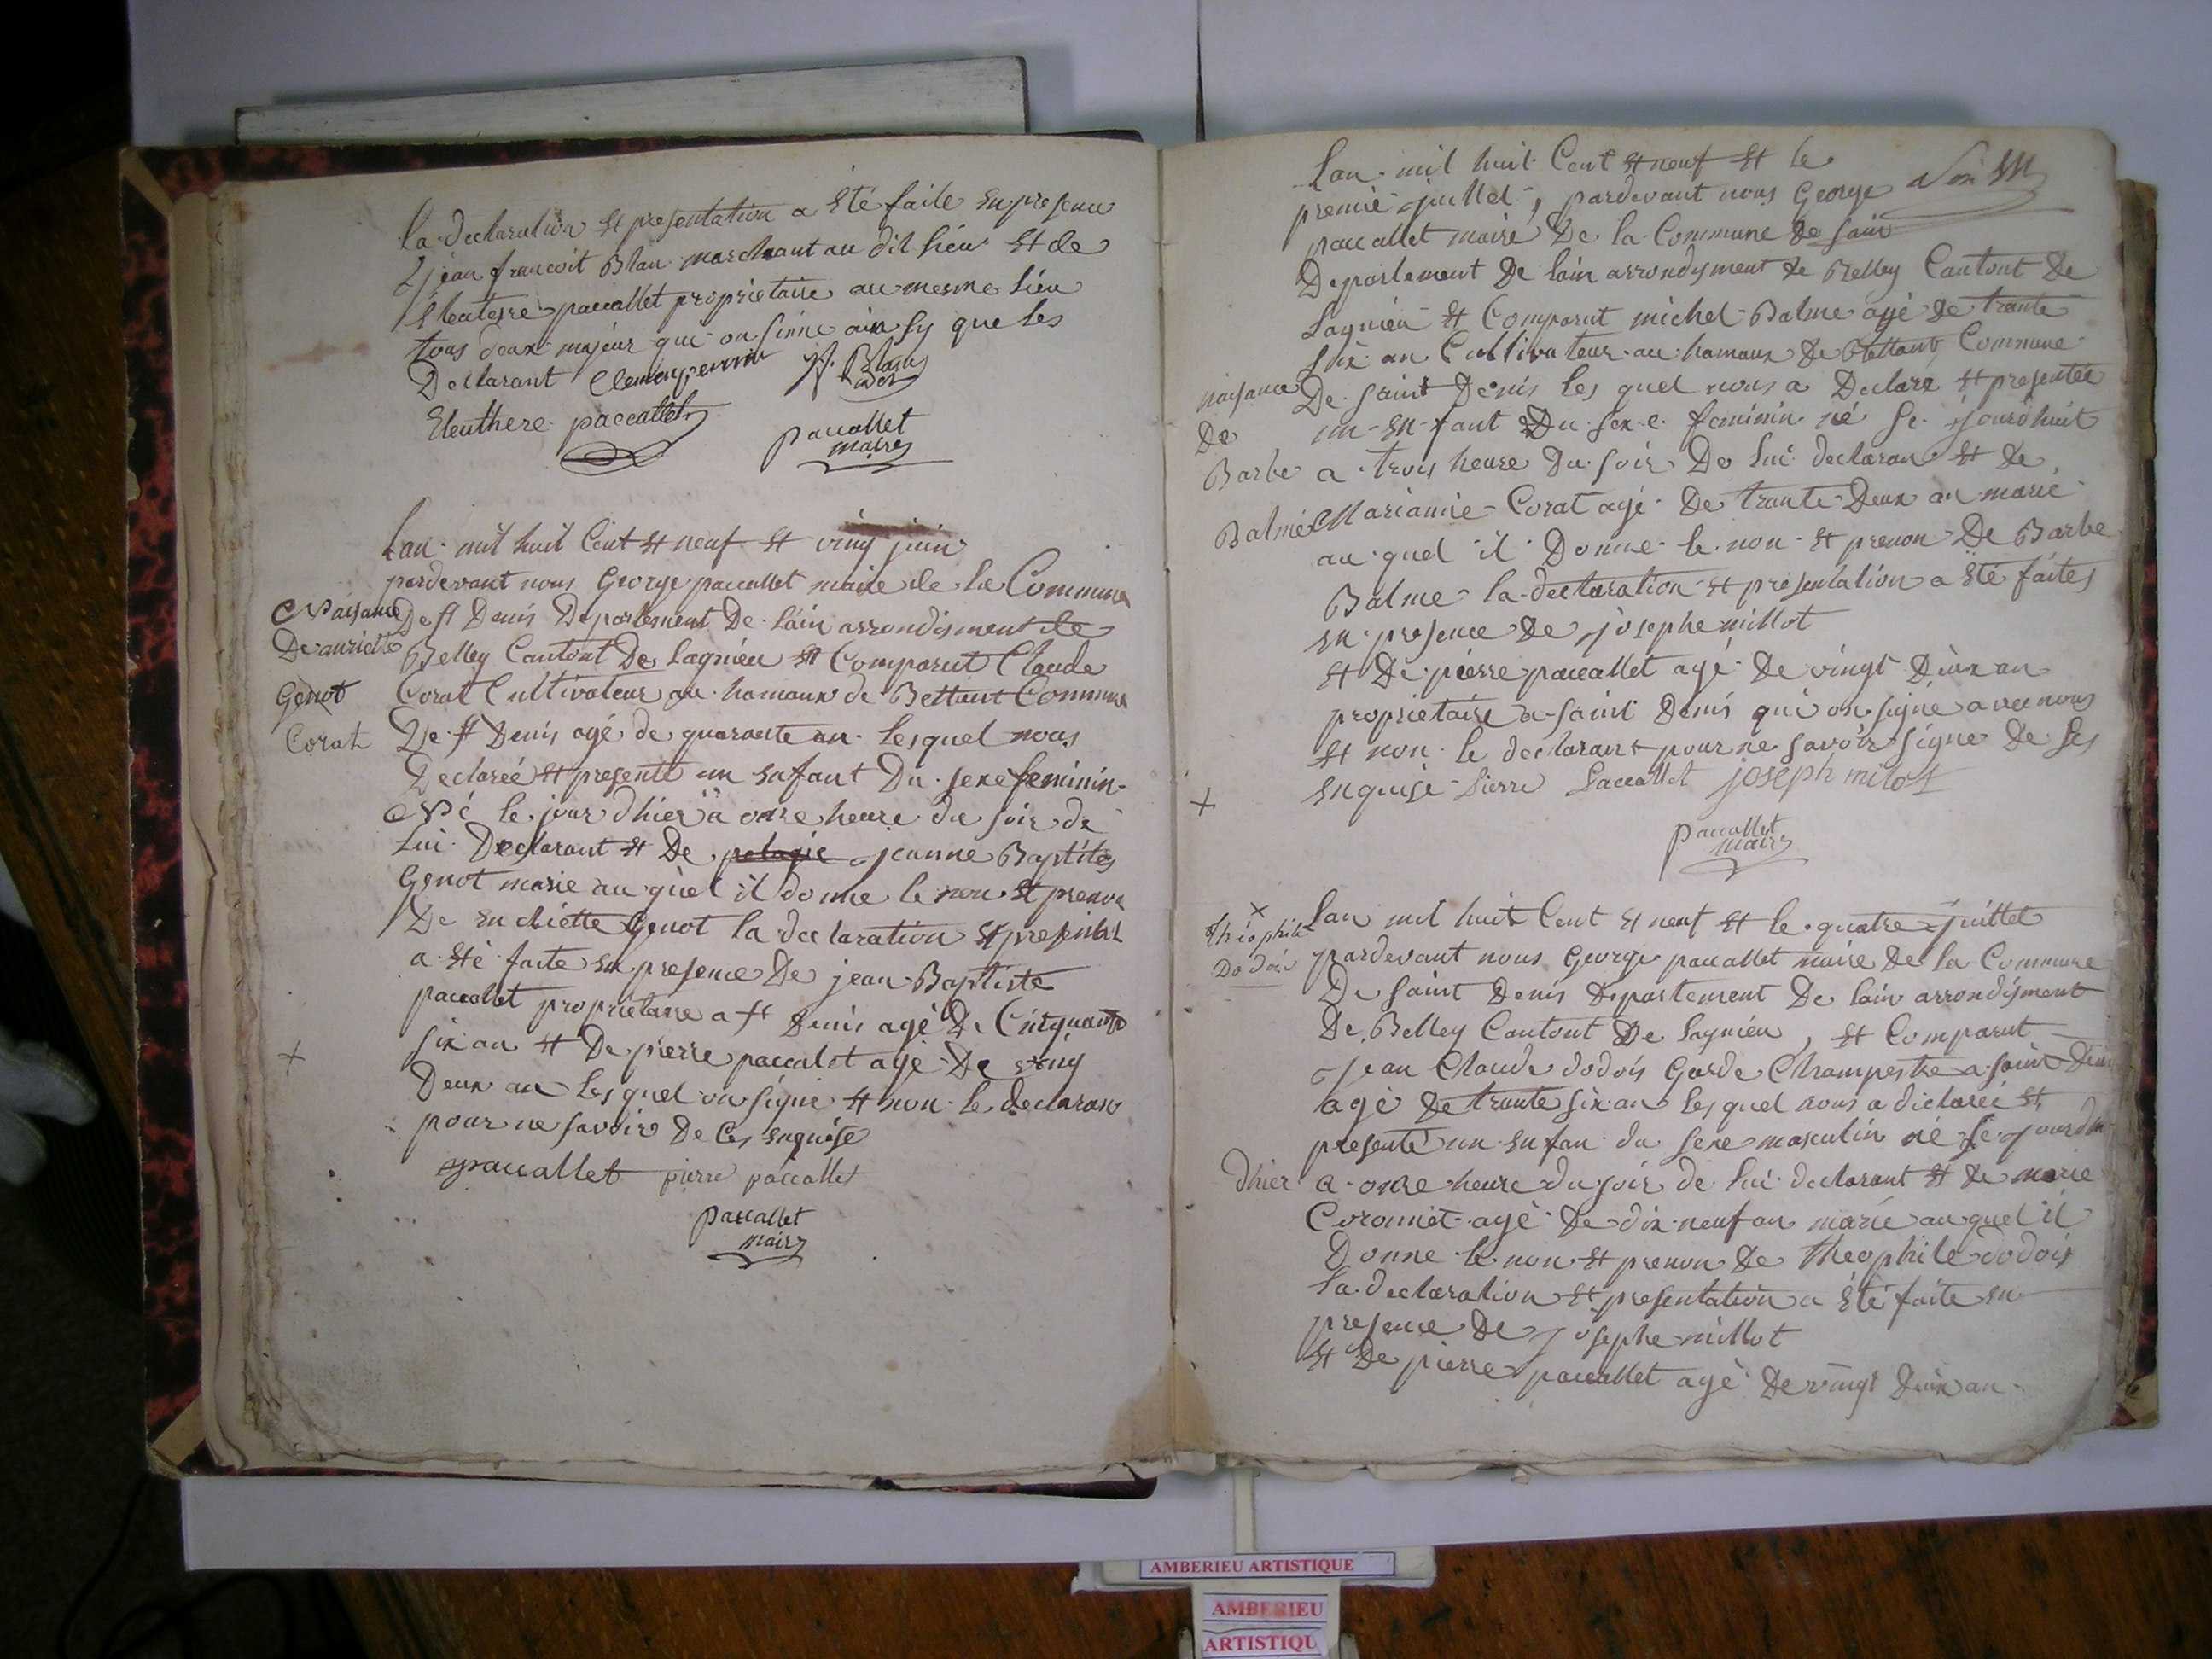 la declaration et presentation a été faite en presence
De jean francoit Blan marchant au dit lieu et de
Eleuterre paccallet proprietaire au mesme lieu
tous deux majeur qui on sinne ainsy que les
Declarant Clemen perrin J. f. Blan
Eleuthere paccallet
paccallet
maire
Lan mil huit Cent et neuf et ving juin
pardevant nous George paccallet maire de la Commune
Naisance
De st Denis Departement De lain arrondisment de
De anriette
Belley Cantont De Lagnieu et Comparut Claude
Genot
Corat Cultivateur au hamaux de Bettant Commune
Corat
De st Denis agé de quarante an lesquel nous
Declareé et presenté un enfant Du sexe feminin
Né le jour dhier a onze heure du soir de
Lui Declarant et De pelagie jeanne Baptiste
Genot marie au quel il donne le non et prenon
De enriette Genot la declaration et presentat
a eté faite en presence De jean Baptiste
paccallet proprietaire a st Denis agé De Cinquante
six an et De pierre paccalet agé De ving
Deux an lesquel on signé et non le declarant
pour ne savoir De Ces enquise
paccallet pierre paccallet
paccallet
maire
Lan mil huit Cent et neuf et le
premié juillet, pardevant nous George
paccallet maire De la Commune De sain
Departement De lain arrondisment de Belley Cantont De
Lagnieu et Comparut michel Balme agé De trante
six an Cultivateur au hamaux De Bettant Commune
naisance
De saint Denis les quel nous a Declaré et presentée
De
un en fant Du sexe feminin né se jourdhuit
Barbe
a trois heure Du soir De lui declaran et De
Balme
Marianne Corat agé De trante Deux an marié
au quel il Donne le non et prenon De Barbe
Balme la declaration et presentation a été faites
en presence De josephe millot
et De pierre paccallet agé De vingt Deux an
proprietaire a saint Denis qui on signé avec nous
et non le declarant pour ne savoir signe De ses
enquise Pierre Paccallet joseph milot
paccallet
maire
Lan mil huit Cent et neuf et le quatre juillet
théophile
pardevant nous George paccallet maire De la Commune
Dodois
De saint Denis Departement De lain arrondisment
De Belley Cantont De Lagnieu, et Comparut
Jean Claude dodois Garde Champestre a saint Denis
agé De trante six an les quel nous a declareé et
presenté un enfan du sexe masculin né se jourdu
dhier
a onze heure du soir de lui declarant et De marie
Coronnet agé De dix neuf an marié au quel il
Donne le non et prenon De theophile dodois
la declaration et presentation a été faite en
presence De josephe millot
et De pierre paccallet agé De vingt Deux an
AMBERIEU ARTISTIQUE
AMBERIEU
ARTISTIQU